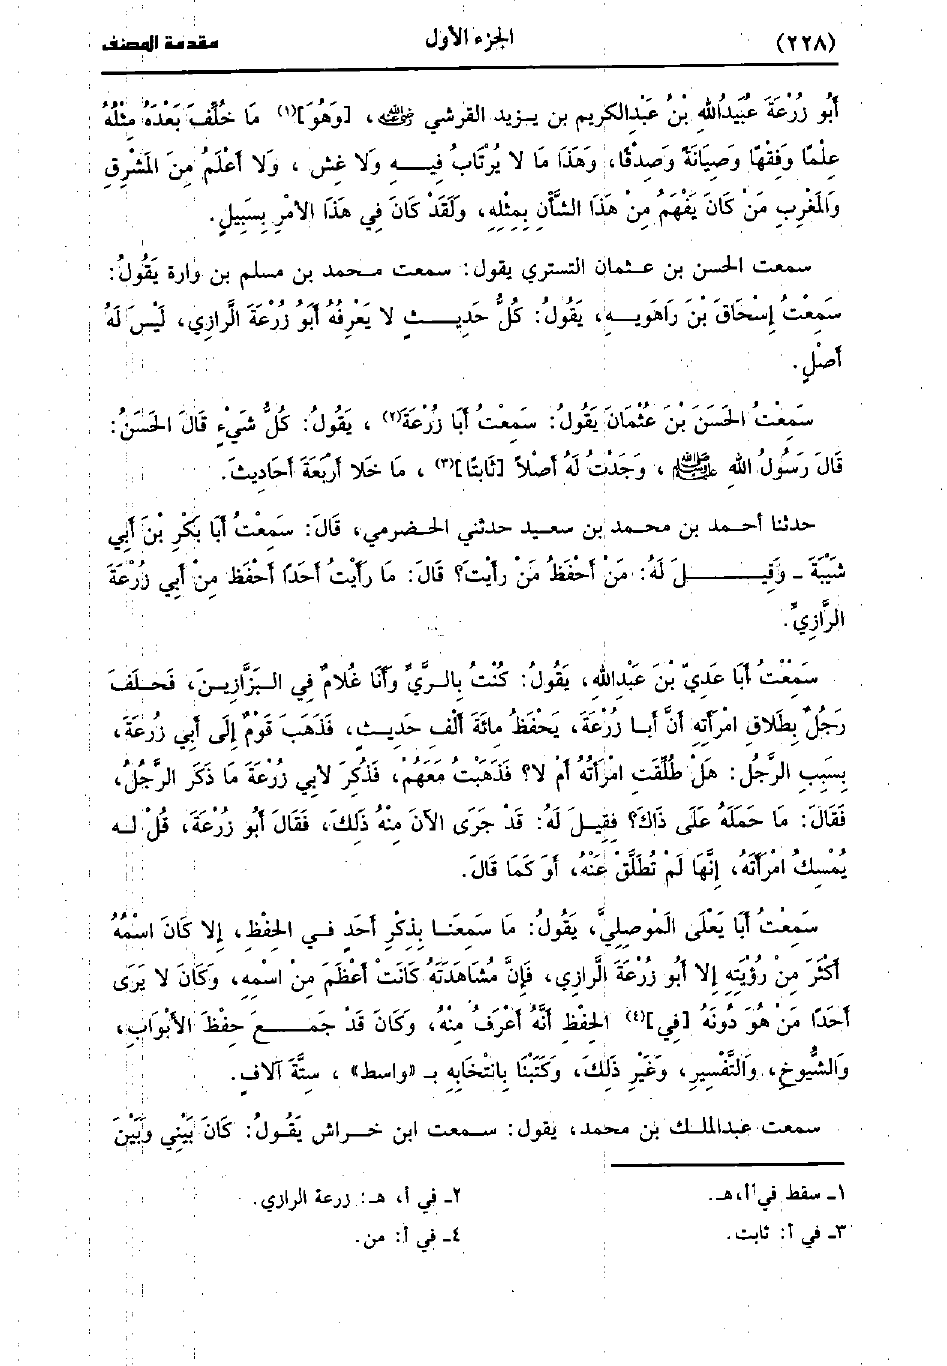 (٢٢٨) الجزء الأول مقدمة المصنف
أَبُو زُرْعَةَ عُبَيدُالله بْنُ عَبْدِالكريم بن يـزيد القرشي ﷺ، [وَهُوَ](١) مَا خُلِّفَ بَعْدَهُ مِثْلُهُ
عِلْمًا وَفِقْهًا وَصِيَانَةً وَصِدْقًا، وَهَذَا مَا لا يُرْتَابُ فِيـــهِ وَلا غِش ، وَلا أَعْلَمُ مِنَ المَشْرِقِ
وَالمَغْرِبِ مَنْ كَانَ يَفْهَمُ مِنْ هَذَا الشَّأْنِ بِمِثْلِهِ، وَلَقَدْ كَانَ فِي هَذَا الأمْرِ بِسَبِيلٍ.
سمعت الحسن بن عـثمان التستري يقول: سمعت محمد بن مسلم بن وارة يَقُولُ:
سَمِعْتُ إِسْحَاقَ بْنَ رَاهَوَيـــهِ، يَقُولُ: كُلُّ حَدِيـــثٍ لا يَعْرِفُهُ أَبُو زُرْعَةَ الرَّازِي، لَيْسَ لَهُ
أَصْلٍ.
سَمِعْتُ الحَسَنَ بْنَ عثْمَانَ يَقُولُ: سَمِعْتُ أَبَا زُرْعَةَ(٢) ، يَقُولُ: كُلُّ شَيْءٍ قَالَ الحَسَنُ:
قَالَ رَسُولُ اللهِ ﷺ ، وَجَدْتُ لَهُ أَصْلاً [ثَابِتًا](٣) ، مَا خَلا أَرْبَعَةَ أَحَادِيثَ.
حدثنا أحـمد بن محمـد بـن سعيـد حدثني الحـضرمي، قَالَ: سَمِعْتُ أَبَا بَكْرِ بْنَ أَبِي
شَيْبَةَ ـ وَقِيـــــــلَ لَهُ: مَنْ أَحْفَظُ مَنْ رَأَيْتَ؟ قَالَ: مَا رَأَيْتُ أَحَدًا أَحْفَظَ مِنْ أَبِي زُرْعَةَ
الرَّازِيِّ.
سَمِعْتُ أَبَا عَدِيّ بْنَ عَبْدِاللهِ، يَقُولُ: كُنْتُ بِالـريِّ وَأَنَا غُلامٌ فِي الـبَزَّازِيـنَ، فَحـلَفَ
رَجُلٌ بِطَلاقِ امْرَأَتِهِ أَنَّ أَبـا زُرْعَةَ، يَحْفَظُ مِائَةَ أَلْفِ حَدِيـثٍ، فَذَهَبَ قَوْمٌ إِلَى أَبِي زُرعَةَ،
بِسَبَبِ الرَّجُلِ: هَلْ طُلِّقَتِ امْرَأَتُهُ أَمْ لا؟ فَذَهَبْتُ مَعَهُمْ، فَذُكِرَ لأبِي زُرْعَةَ مَا ذَكَرَ الرَّجُلُ،
فَقَالَ: مَا حَمَلَهُ عَلَى ذَاكَ؟ فَقِيـلَ لَهُ: قَدْ جَرَى الآنَ مِنْهُ ذَلِكَ، فَقَالَ أَبُو زُرْعَةَ، قُلْ لـه
يُمْسِكُ امْرَأَتَهُ، إِنَّهَا لَمْ تُطَلَّقْ عَنْهُ، أَوَ كَمَا قَالَ.
سَمِعْتُ أَبَا يَعْلَى الَموْصِلِيَّ، يَقُولُ: مَا سَمِعْنَـا بِذِكْرِ أَحَدٍ فـي الحِفْظِ، إلا كَانَ اسْمُهُ
أَكْثَرَ مِنْ رُؤْيَتِهِ إلا أَبُو زُرْعَةَ الرَّازِي، فَإِنَّ مُشَاهَدَتَهُ كَانَتْ أَعْظَمَ مِنْ اسْمِهِ، وَكَانَ لا يَرَى
أَحَدًا مَنْ هُوَ دُونَهُ [فِي](٤) الحِفْظِ أَنَّهُ أَعْرَفُ مِنْهُ، وَكَانَ قَدْ جَمَـــعَ حِفْظَ الأَبْوَابِ،
وَالشُّيوخِ، وَالتَّفْسِيرِ، وَغَيْرِ ذَلِكَ، وَكَتَبْنَا بِانْتِخَابِهِ بـ «واسط» ، سِتَّةَ آلاف.
سمعت عبدالملـك بن محمد، يقول: سـمعت ابن خـراش يَقُـولُ: كَانَ بَيْنِي وَبَيْنَ
١ـ سقط في أ، هـ.
٢ـ في أ، هـ: زرعة الرازي.
٣ـ في أ: ثابت.
٤ـ في أ: من.